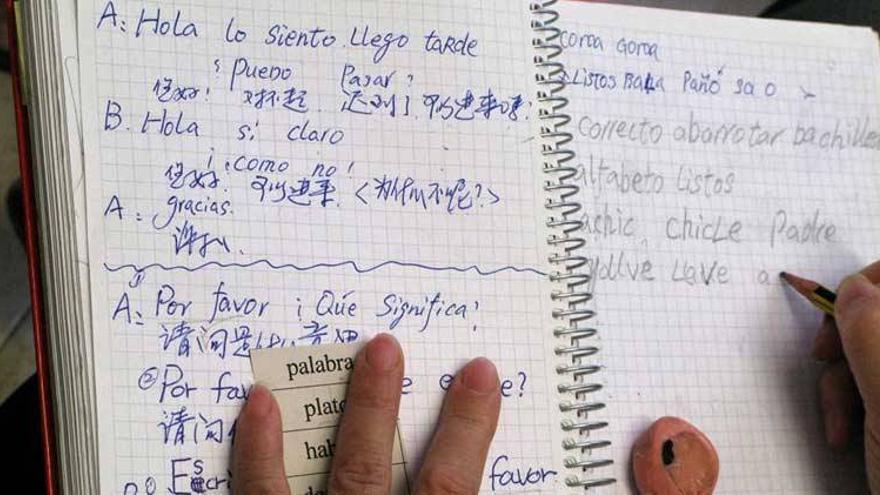 A: Hola lo siento llego tarde
¿ Puedo Pasar ?
你好! 对不起. 迟到了. 可以进来吗?
B. Hola sí claro
¡ como no !
你好. 可以进来. <为什么不呢?>
A: gracias.
谢谢.
①
A: Por favor ¡ Qúe Significa?
请问是什么意思
② Por fav e?
请问
Escri favor
palabra
plato
hab
Goma Goma
Listos Pañó sa o
correcto abarrotar bachiller
alfabeto Listos
chicLe Padre
LLave a